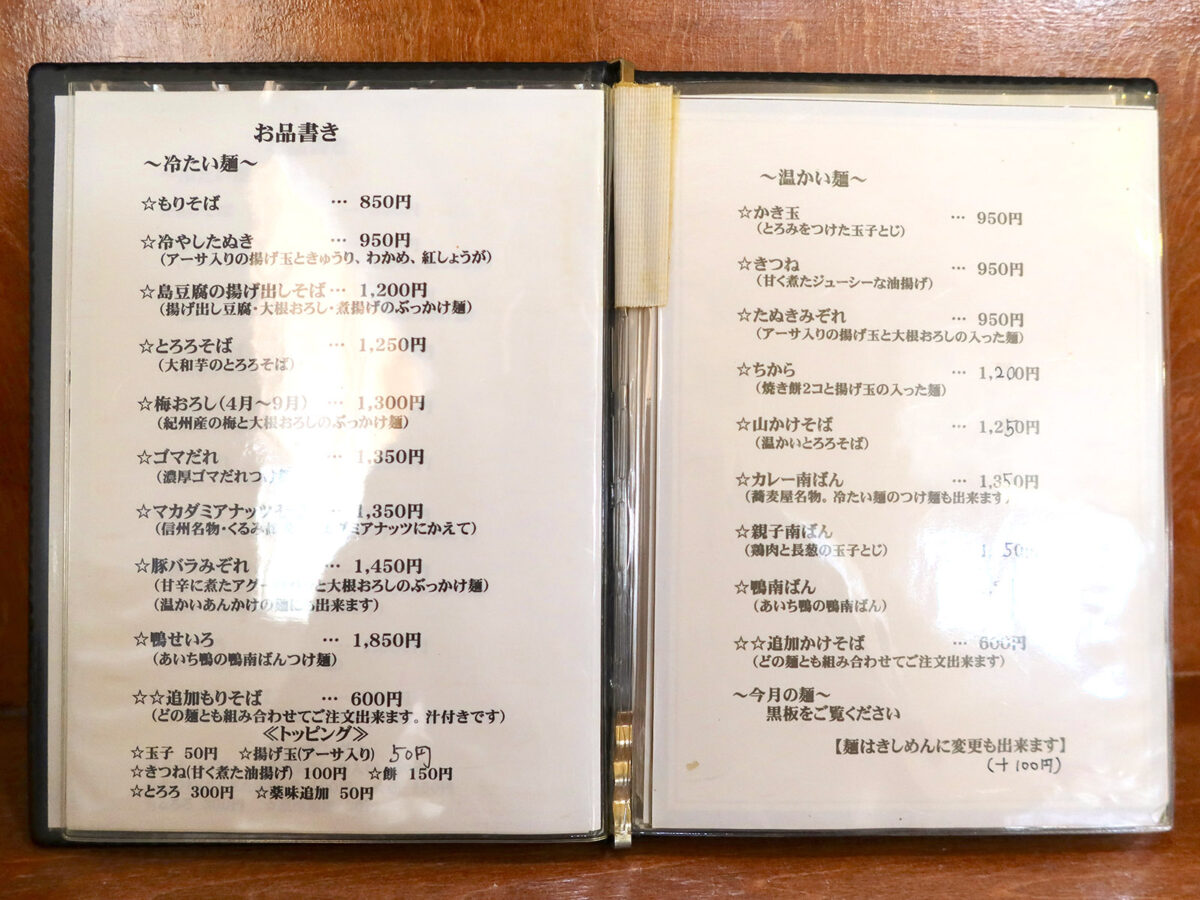 お品書き
～冷たい麺～
☆もりそば … 850円
☆冷やしたぬき … 950円
(アーサ入りの揚げ玉ときゅうり、わかめ、紅しょうが)
☆島豆腐の揚げ出しそば … 1,200円
(揚げ出し豆腐・大根おろし・煮揚げのぶっかけ麺)
☆とろろそば … 1,250円
(大和芋のとろろそば)
☆梅おろし(4月～9月) … 1,300円
(紀州産の梅と大根おろしのぶっかけ麺)
☆ゴマだれ … 1,350円
(濃厚ゴマだれつけ
☆マカダミアナッツ … 1,350円
(信州名物・くるみ ミアナッツにかえて)
☆豚バラみぞれ … 1,450円
(甘辛に煮たアグー と大根おろしのぶっかけ麺)
(温かいあんかけの麺にも出来ます)
☆鴨せいろ … 1,850円
(あいち鴨の鴨南ばんつけ麺)
☆☆追加もりそば … 600円
(どの麺とも組み合わせてご注文出来ます。汁付きです)
≪トッピング≫
☆玉子 50円 ☆揚げ玉(アーサ入り) 50円
☆きつね(甘く煮た油揚げ) 100円 ☆餅 150円
☆とろろ 300円 ☆薬味追加 50円
～温かい麺～
☆かき玉 … 950円
(とろみをつけた玉子とじ)
☆きつね … 950円
(甘く煮たジューシーな油揚げ)
☆たぬきみぞれ … 950円
(アーサ入りの揚げ玉と大根おろしの入った麺)
☆ちから … 1,200円
(焼き餅2コと揚げ玉の入った麺)
☆山かけそば … 1,250円
(温かいとろろそば)
☆カレー南ばん … 1,350円
(蕎麦屋名物。冷たい麺のつけ麺も出来ます)
☆親子南ばん
(鶏肉と長葱の玉子とじ)
☆鴨南ばん
(あいち鴨の鴨南ばん)
☆☆追加かけそば … 600円
(どの麺とも組み合わせてご注文出来ます)
～今月の麺～
黒板をご覧ください
【麺はきしめんに変更も出来ます】
(+100円)